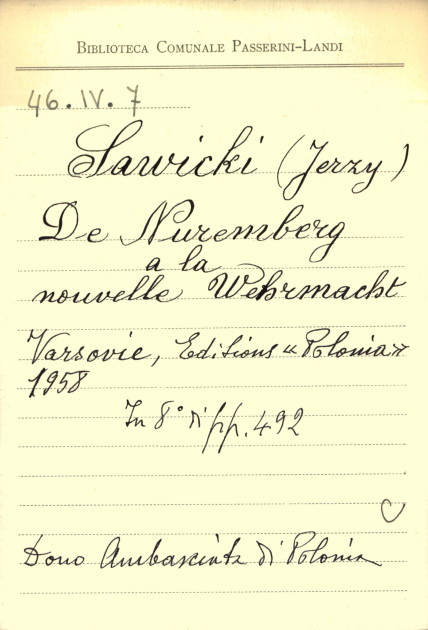 BIBLIOTECA COMUNALE PASSERINI-LANDI
46.IV.7
Sawicki (Jerzy)
De Nuremberg
a la
nouvelle Wehrmacht
Varsovie, Editions «Polonia»
1958
In 8° di pp. 492
Dono Ambasciata di Polonia